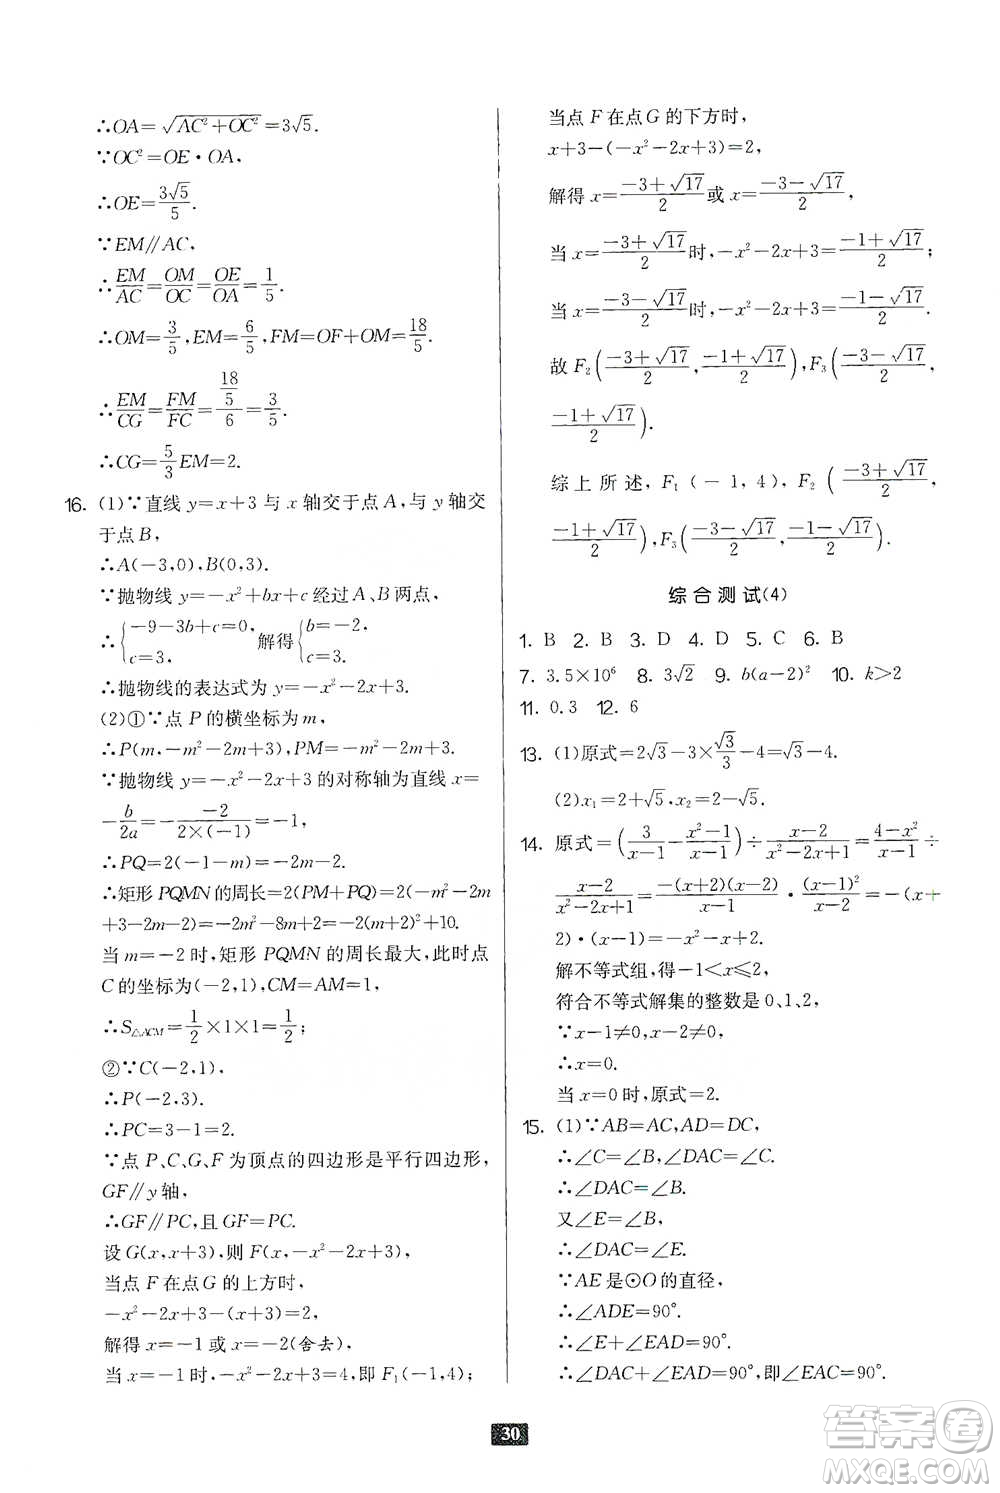 ∴OA=√(AC²+OC²)=3√5.
∵OC²=OE·OA,
∴OE=3√5/5.
∵EM∥AC,
∴EM/AC=OM/OC=OE/OA=1/5.
∴OM=3/5,EM=6/5,FM=OF+OM=18/5.
∴EM/CG=FM/FC=(18/5)/6=3/5.
∴CG=5/3EM=2.
16. (1)∵直线 y=x+3 与 x 轴交于点 A,与 y 轴交
于点 B,
∴A(-3,0),B(0,3).
∵抛物线 y=-x²+bx+c 经过 A、B 两点,
∴{-9-3b+c=0, c=3. 解得{b=-2, c=3.
∴抛物线的表达式为 y=-x²-2x+3.
(2)①∵点 P 的横坐标为 m,
∴P(m,-m²-2m+3),PM=-m²-2m+3.
∵抛物线 y=-x²-2x+3 的对称轴为直线 x=
-b/2a=-(-2)/(2×(-1))=-1,
∴PQ=2(-1-m)=-2m-2.
∴矩形 PQMN 的周长=2(PM+PQ)=2(-m²-2m
+3-2m-2)=-2m²-8m+2=-2(m+2)²+10.
当 m=-2 时,矩形 PQMN 的周长最大,此时点
C 的坐标为(-2,1),CM=AM=1,
∴S△ACM=1/2×1×1=1/2;
②∵C(-2,1),
∴P(-2,3).
∴PC=3-1=2.
∵点 P、C、G、F 为顶点的四边形是平行四边形,
GF∥y 轴,
∴GF∥PC,且 GF=PC.
设 G(x,x+3),则 F(x,-x²-2x+3),
当点 F 在点 G 的上方时,
-x²-2x+3-(x+3)=2,
解得 x=-1 或 x=-2(舍去),
当 x=-1 时,-x²-2x+3=4,即 F₁(-1,4);
当点 F 在点 G 的下方时,
x+3-(-x²-2x+3)=2,
解得 x=(-3+√17)/2 或 x=(-3-√17)/2,
当 x=(-3+√17)/2 时,-x²-2x+3=(-1+√17)/2;
当 x=(-3-√17)/2 时,-x²-2x+3=(-1-√17)/2.
故 F₂((-3+√17)/2,(-1+√17)/2),F₃((-3-√17)/2,
(-1-√17)/2).
综上所述,F₁(-1,4),F₂((-3+√17)/2,
(-1+√17)/2),F₃((-3-√17)/2,(-1-√17)/2).
综合测试(4)
1. B 2. B 3. D 4. D 5. C 6. B
7. 3.5×10⁶ 8. 3√2 9. b(a-2)² 10. k>2
11. 0.3 12. 6
13. (1)原式=2√3-3×√3/3-4=√3-4.
(2)x₁=2+√5,x₂=2-√5.
14. 原式=(3/(x-1)-(x²-1)/(x-1))÷(x-2)/(x²-2x+1)=(4-x²)/(x-1)÷
(x-2)/(x²-2x+1)=-(x+2)(x-2)/(x-1)·(x-1)²/(x-2)=-(x+
2)·(x-1)=-x²-x+2.
解不等式组,得-1<x≤2,
符合不等式解集的整数是 0,1,2,
∵x-1≠0,x-2≠0,
∴x=0.
当 x=0 时,原式=2.
15. (1)∵AB=AC,AD=DC,
∴∠C=∠B,∠DAC=∠C.
∴∠DAC=∠B.
又∠E=∠B,
∴∠DAC=∠E.
∵AE 是⊙O 的直径,
∴∠ADE=90°.
∴∠E+∠EAD=90°.
∴∠DAC+∠EAD=90°,即∠EAC=90°.
30
答案圈
MXQE.COM